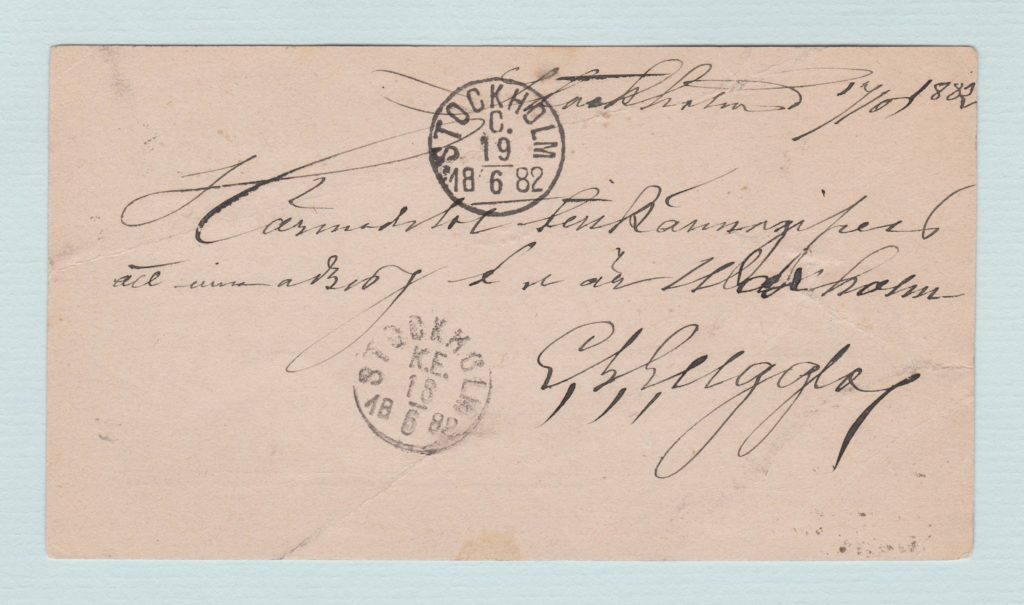 Stockholm 17/6 1882
STOCKHOLM
C.
19
18 6 82
Härmedelst tillkännagifves
att min adress är Waxholm
STOCKHOLM
K.E.
18
18 6 82
Uggla